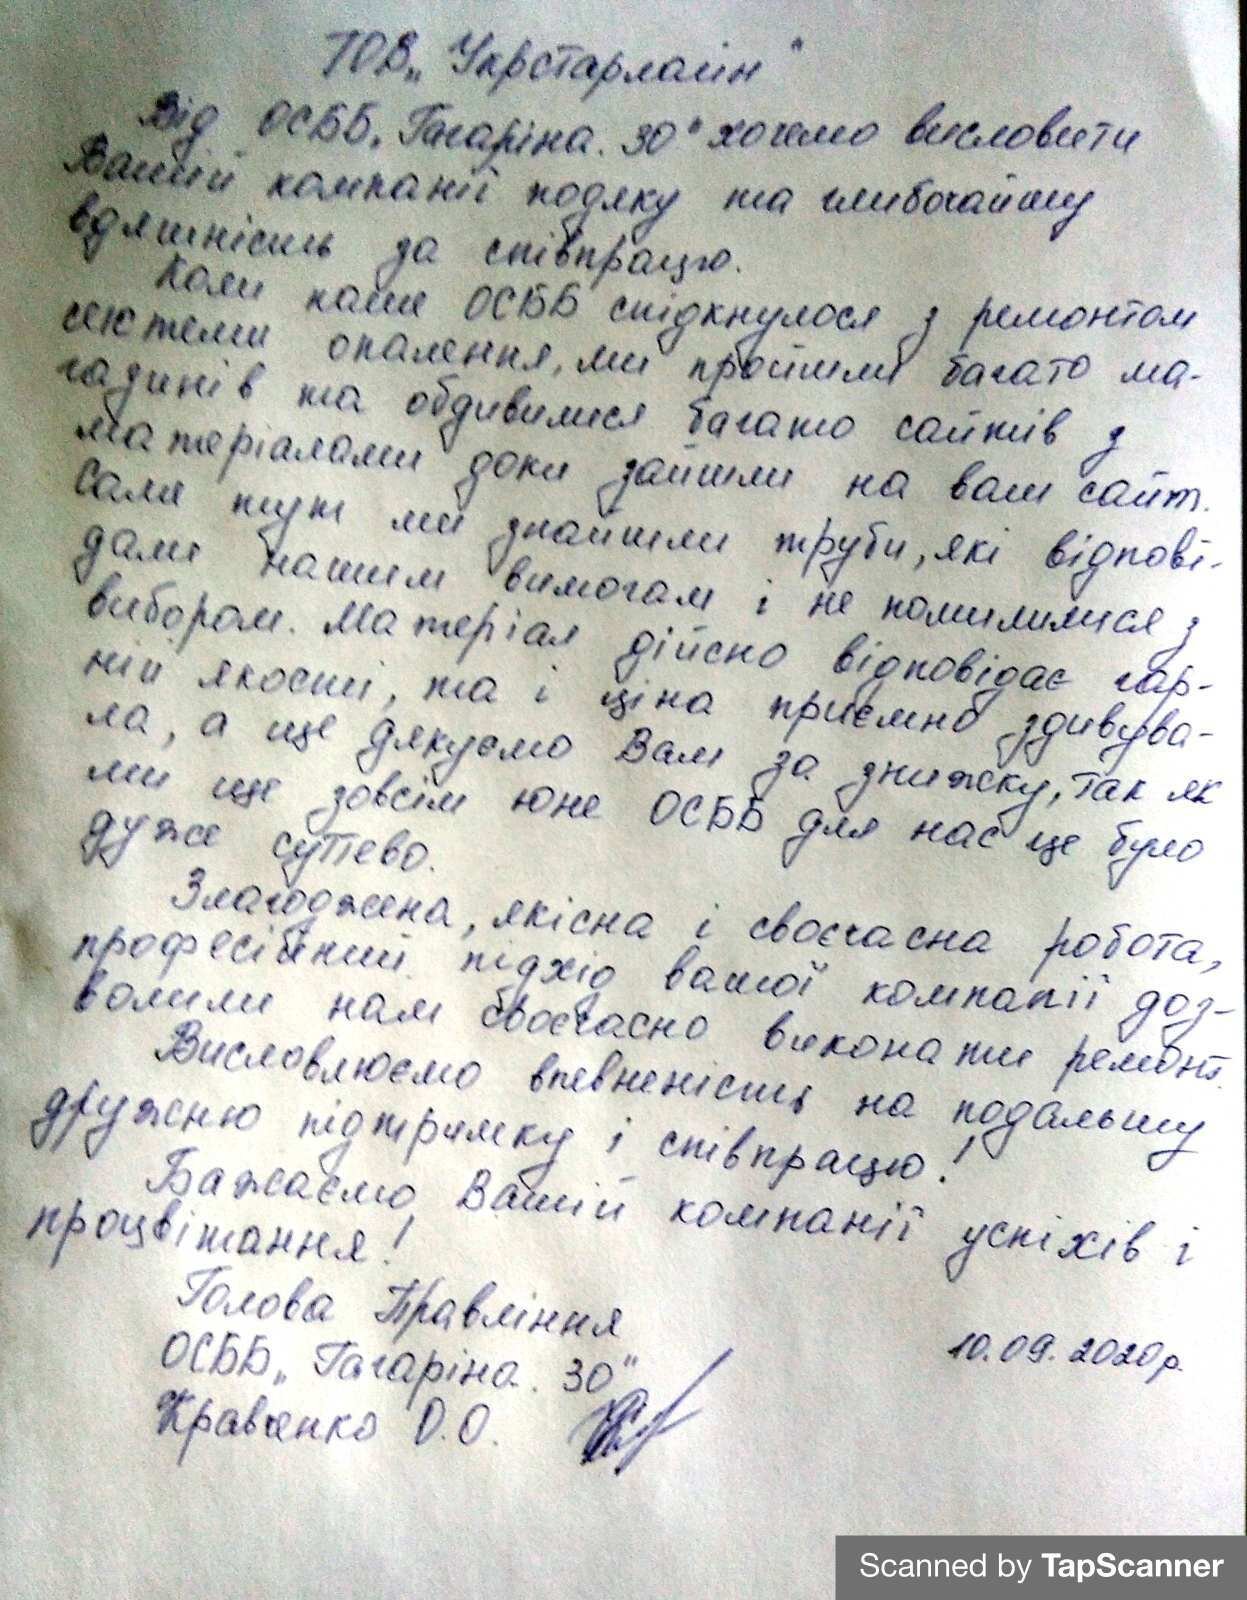 ТОВ „Укрстарлайн"
Від ОСББ „Гагаріна. 30" хочемо висловити
Вашій компанії подяку та глибочайшу
вдячність за співпрацю.
Коли наше ОСББ спідкнулося з ремонтом
системи опалення, ми пройшли багато ма-
газинів та обдивилися багато сайтів з
матеріалами доки зайшли на ваш сайт.
Саме тут ми знайшли труби, які відпові-
дали нашим вимогам і не помилилися з
вибором. Матеріал дійсно відповідає гар-
ній якості, та і ціна приємно здивува-
ла, а ще дякуємо Вам за знижку, так як
ми ще зовсім юне ОСББ для нас це було
дуже суттєво.
Злагоджена, якісна і своєчасна робота,
професійний підхід вашої компанії доз-
волили нам своєчасно виконати ремонт.
Висловлюємо впевненість на подальшу
дружню підтримку і співпрацю!
Бажаємо Вашій компанії успіхів і
процвітання!
Голова Правління
ОСББ „Гагаріна. 30"
10.09.2020р.
Кравченко О.О.
Scanned by TapScanner